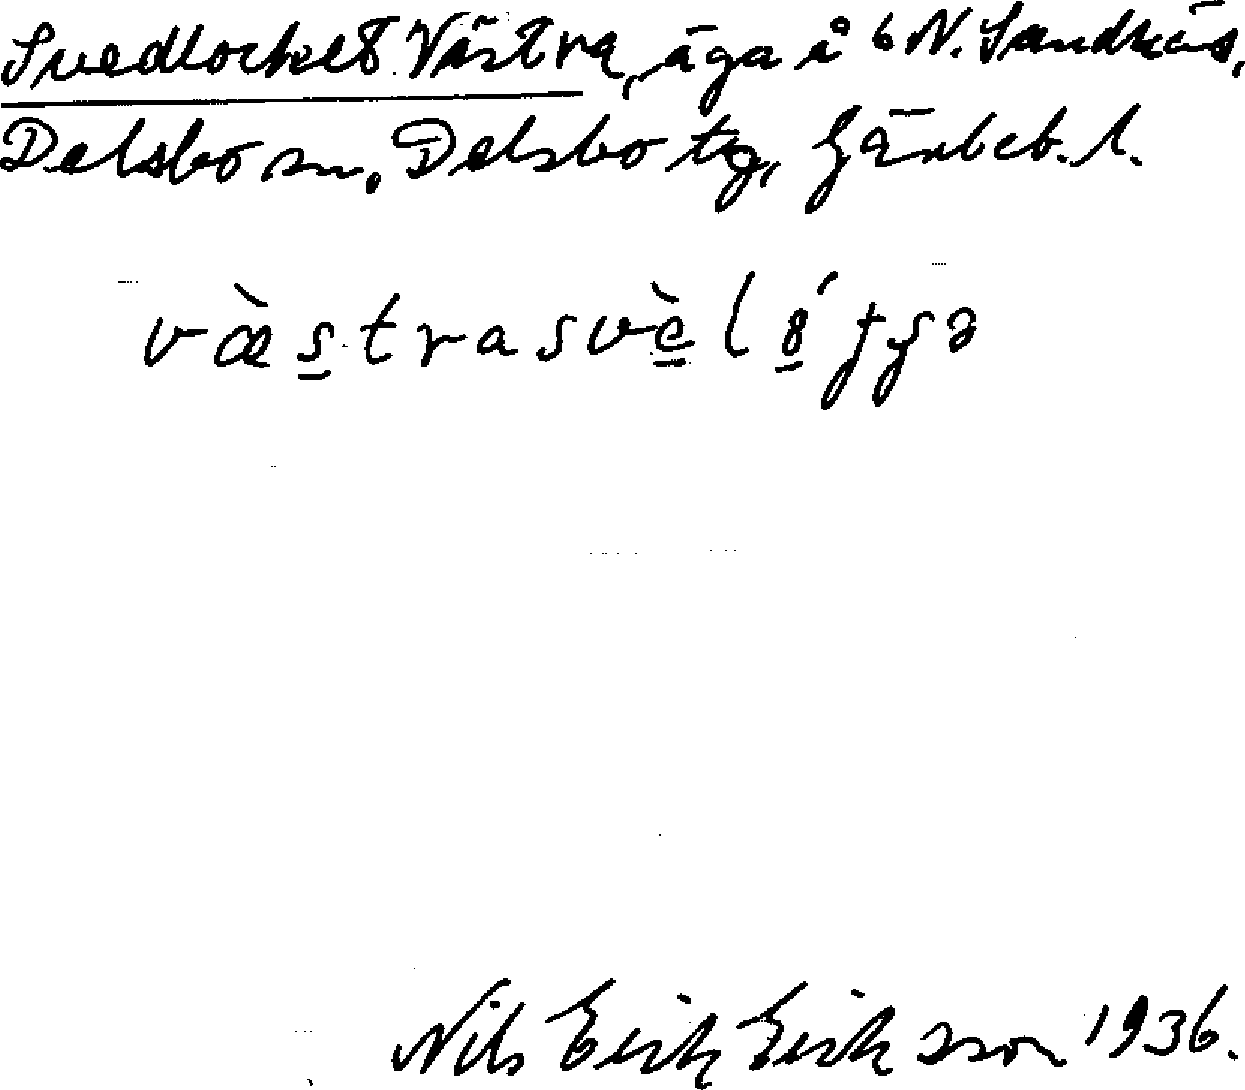 Svedlocket Västra, äga å 6 N. Sandnäs,
Delsbo sn, Delsbo tg, Gävleb. l.
Nils Erik Eriksson 1936.